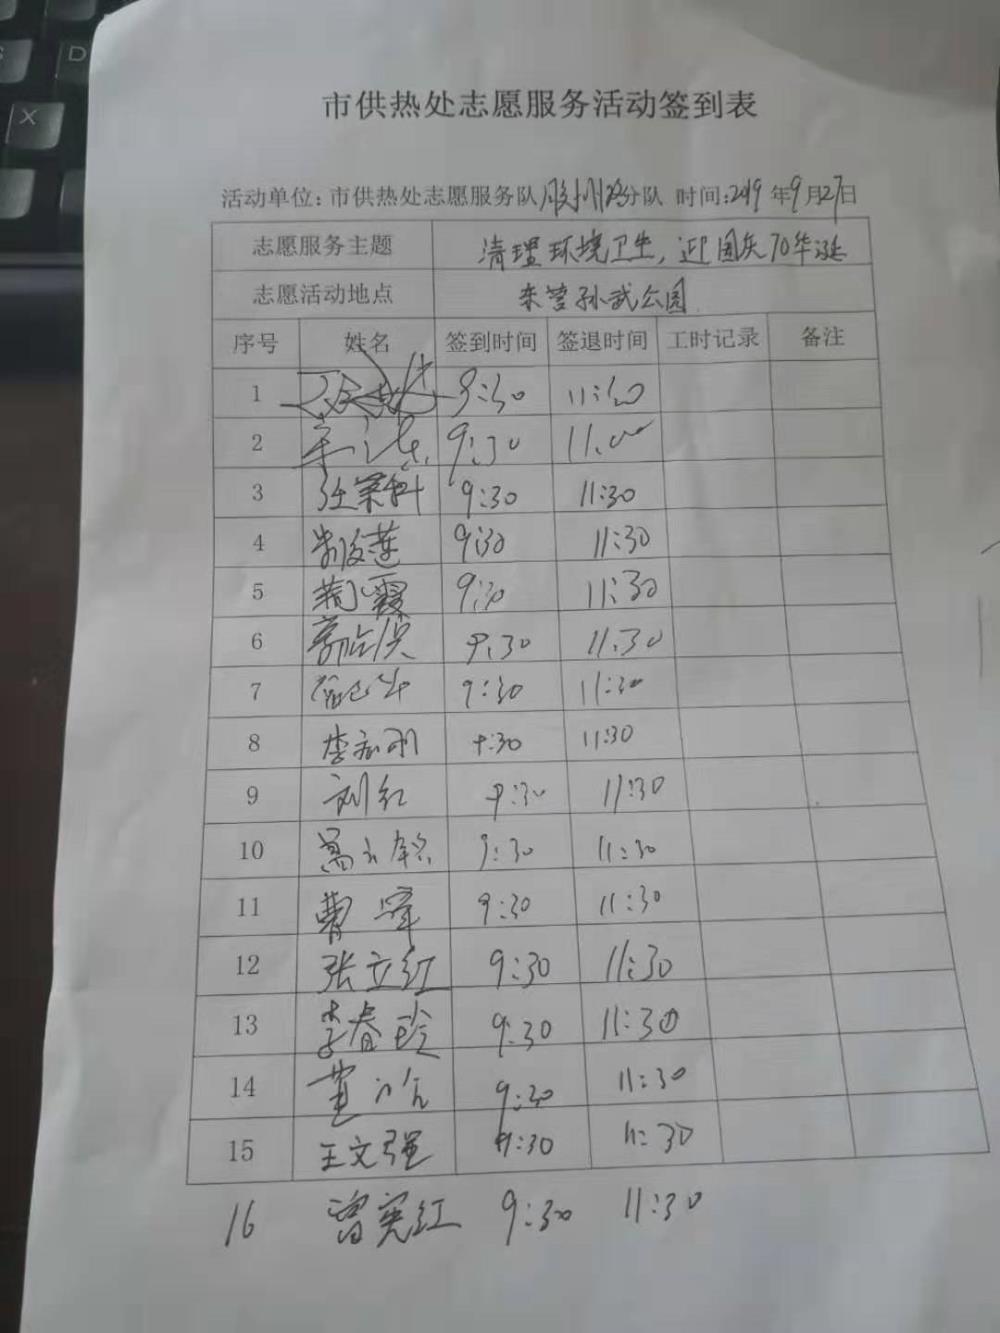 市供热处志愿服务活动签到表
活动单位：市供热处志愿服务队 分队 时间:2019年9月27日
志愿服务主题 清理环境卫生，迎国庆70华诞
志愿活动地点 东营孙武公园
序号 姓名 签到时间 签退时间 工时记录 备注
1 9:30 11:30
2 9:30 11:00
3 9:30 11:30
4 9:30 11:30
5 9:30 11:30
6 9:30 11:30
7 9:30 11:30
8 9:30 11:30
9 刘红 9:30 11:30
10 9:30 11:30
11 9:30 11:30
12 张立红 9:30 11:30
13 李春玲 9:30 11:30
14 9:30 11:30
15 王文强 9:30 11:30
16 曾宪红 9:30 11:30